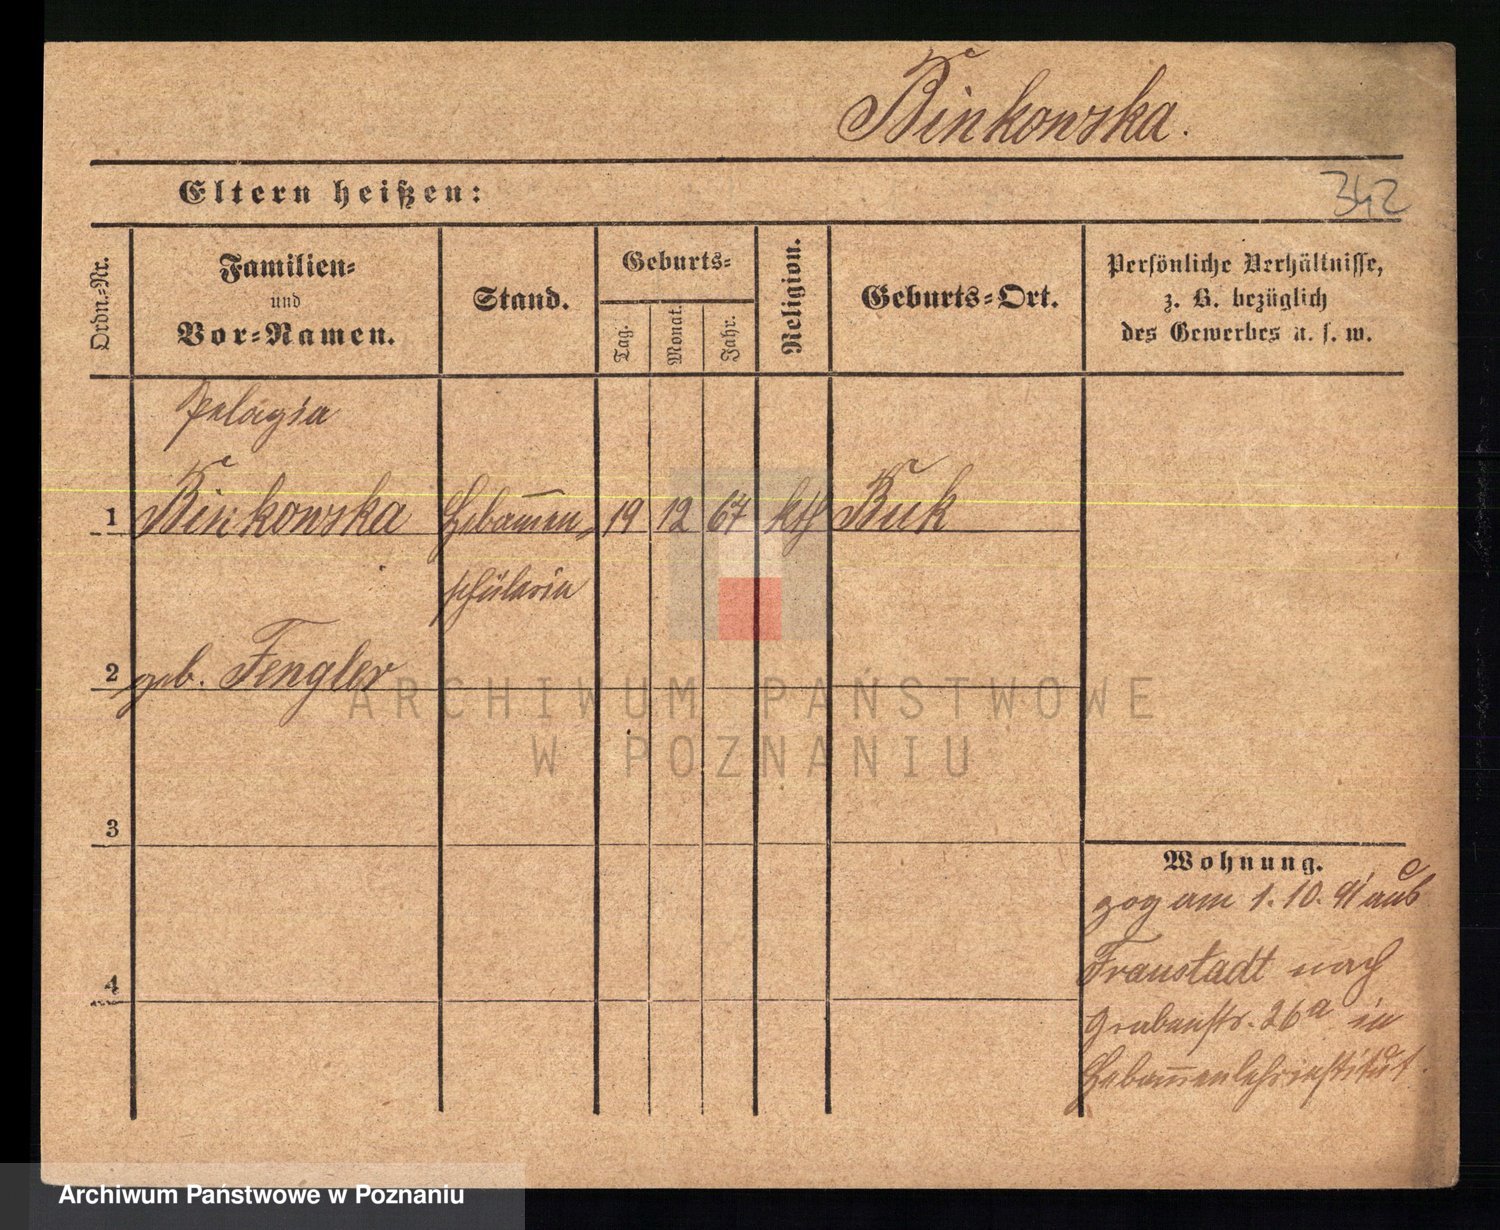 Binkowska.
Eltern heißen:
342
Ordn.-Nr.
Familien-
und
Vor-Namen.
Stand.
Geburts-
Tag.
Monat.
Jahr.
Religion.
Geburts-Ort.
Persönliche Verhältnisse,
z. B. bezüglich
des Gewerbes u. s. w.
Pelagia
1 Binkowska Hebam̅en- 19 12 67 kth Buk
schülerin
2 geb. Fengler
ARCHIWUM PAŃSTWOWE
W POZNANIU
3
Wohnung.
zog am 1. 10. 91 aus
Fraustadt nach
4
Grabenstr. 26a in
Hebam̅enlehrinstitut.
Archiwum Państwowe w Poznaniu